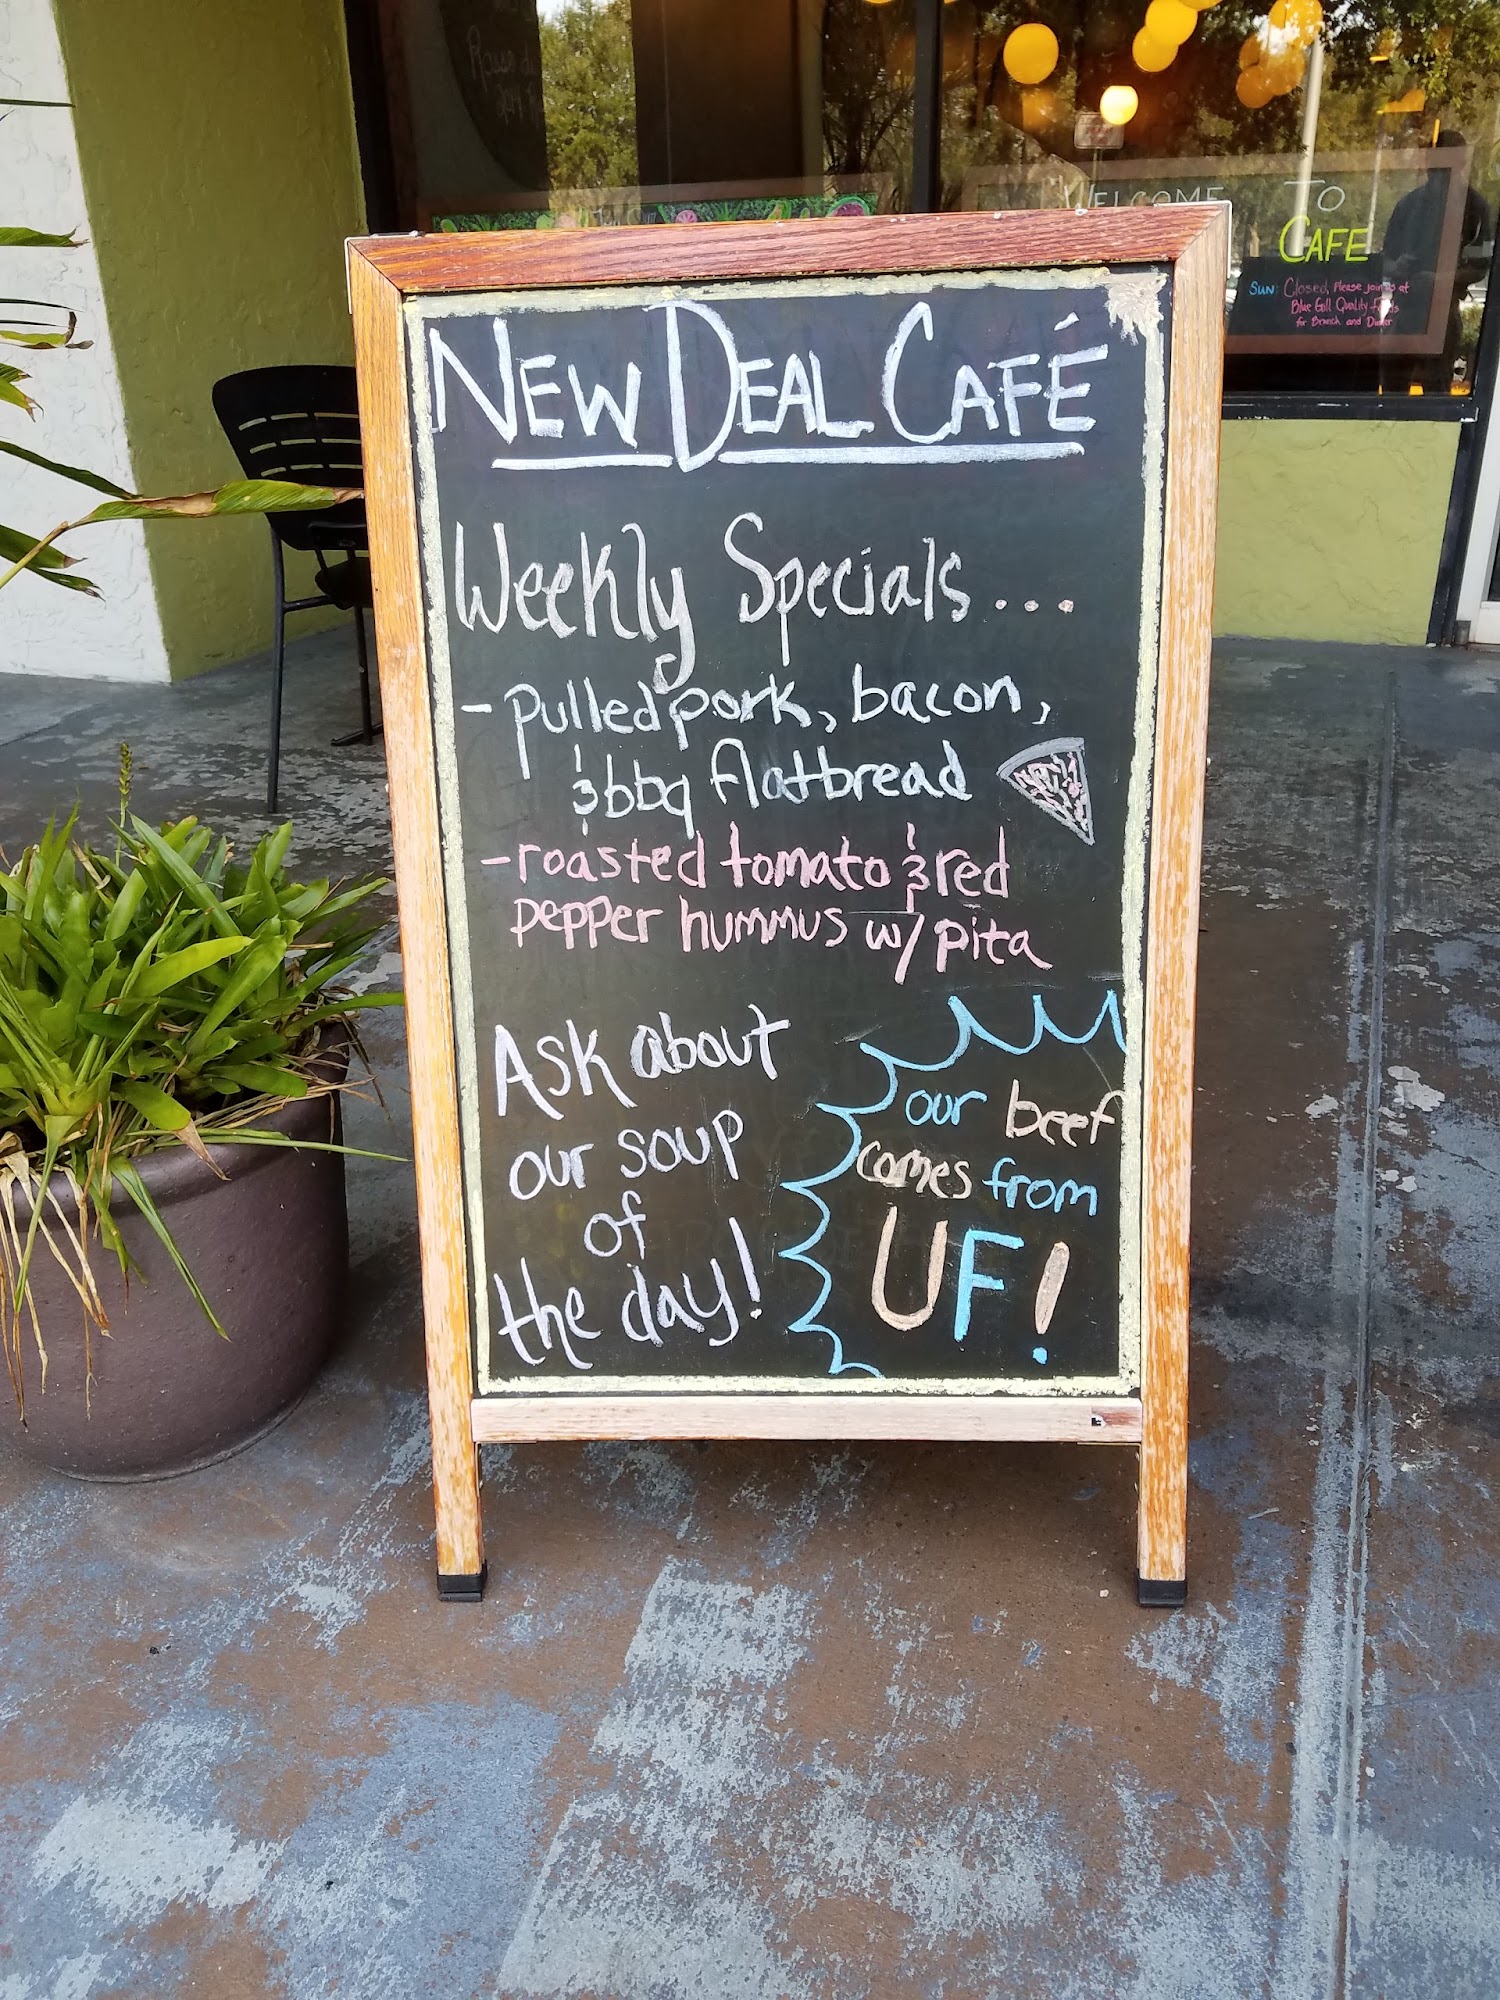 NEW DEAL CAFÉ
Weekly Specials...
- pulled pork, bacon,
& bbq flatbread
- roasted tomato & red
pepper hummus w/ pita
Ask about
our soup
of
the day!
our beef
comes from
UF!
WELCOME TO
CAFE
SUN: Closed, Please join us at
Blue Gill Quality Foods
for Brunch and Dinner